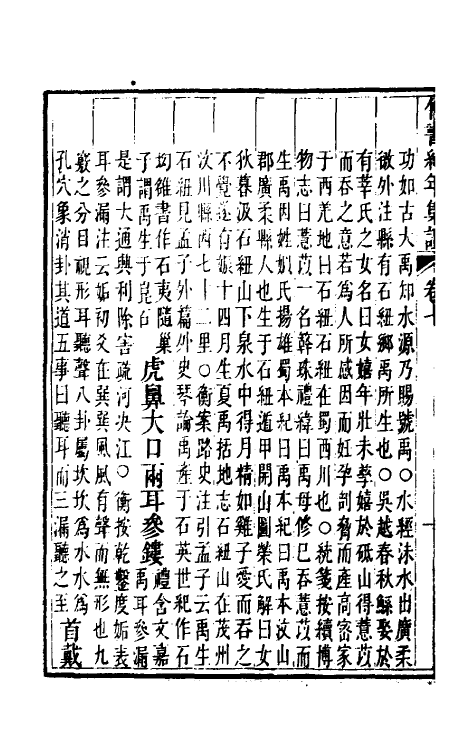 竹書紀年集證 卷七
功如古大禹知水源乃賜號禹○水經沫水出廣柔
徼外注縣有石紐鄉禹所生也○吳越春秋鯀娶於
有莘氏之女名曰女嬉年壯未孳嬉於砥山得薏苡
而吞之意若為人所感因而妊孕剖脅而產高密家
于西羌地曰石紐石紐在蜀西川也○統箋按續博
物志曰薏苡一名簳珠禮緯曰禹母修己吞薏苡而
生禹因姓姒氏揚雄蜀本紀曰禹本紀曰禹本汶山
郡廣柔縣人也生于石紐遁甲開山圖榮氏解曰女
狄暮汲石紐山下泉水中得月精如雞子愛而吞之
不覺遂有娠十四月生夏禹括地志石紐山在茂州
汶川縣西七十二里○衡案路史注引孟子云禹生
石紐見孟子外篇外史琴論禹產于石英世紀作石
㘬雒書作石夷隨巢
子謂禹生于崑石 虎鼻大口兩耳參鏤 禮含文嘉
禹耳參漏
是謂大通興利除害疏河決江○衡按乾鑿度姤表
耳參漏注云姤初爻在巽巽風風有聲而無形也九
竅之分目視形耳聽聲八卦屬坎坎為水水為
孔穴象消卦其道五事曰聽耳而三漏聽之至 首戴